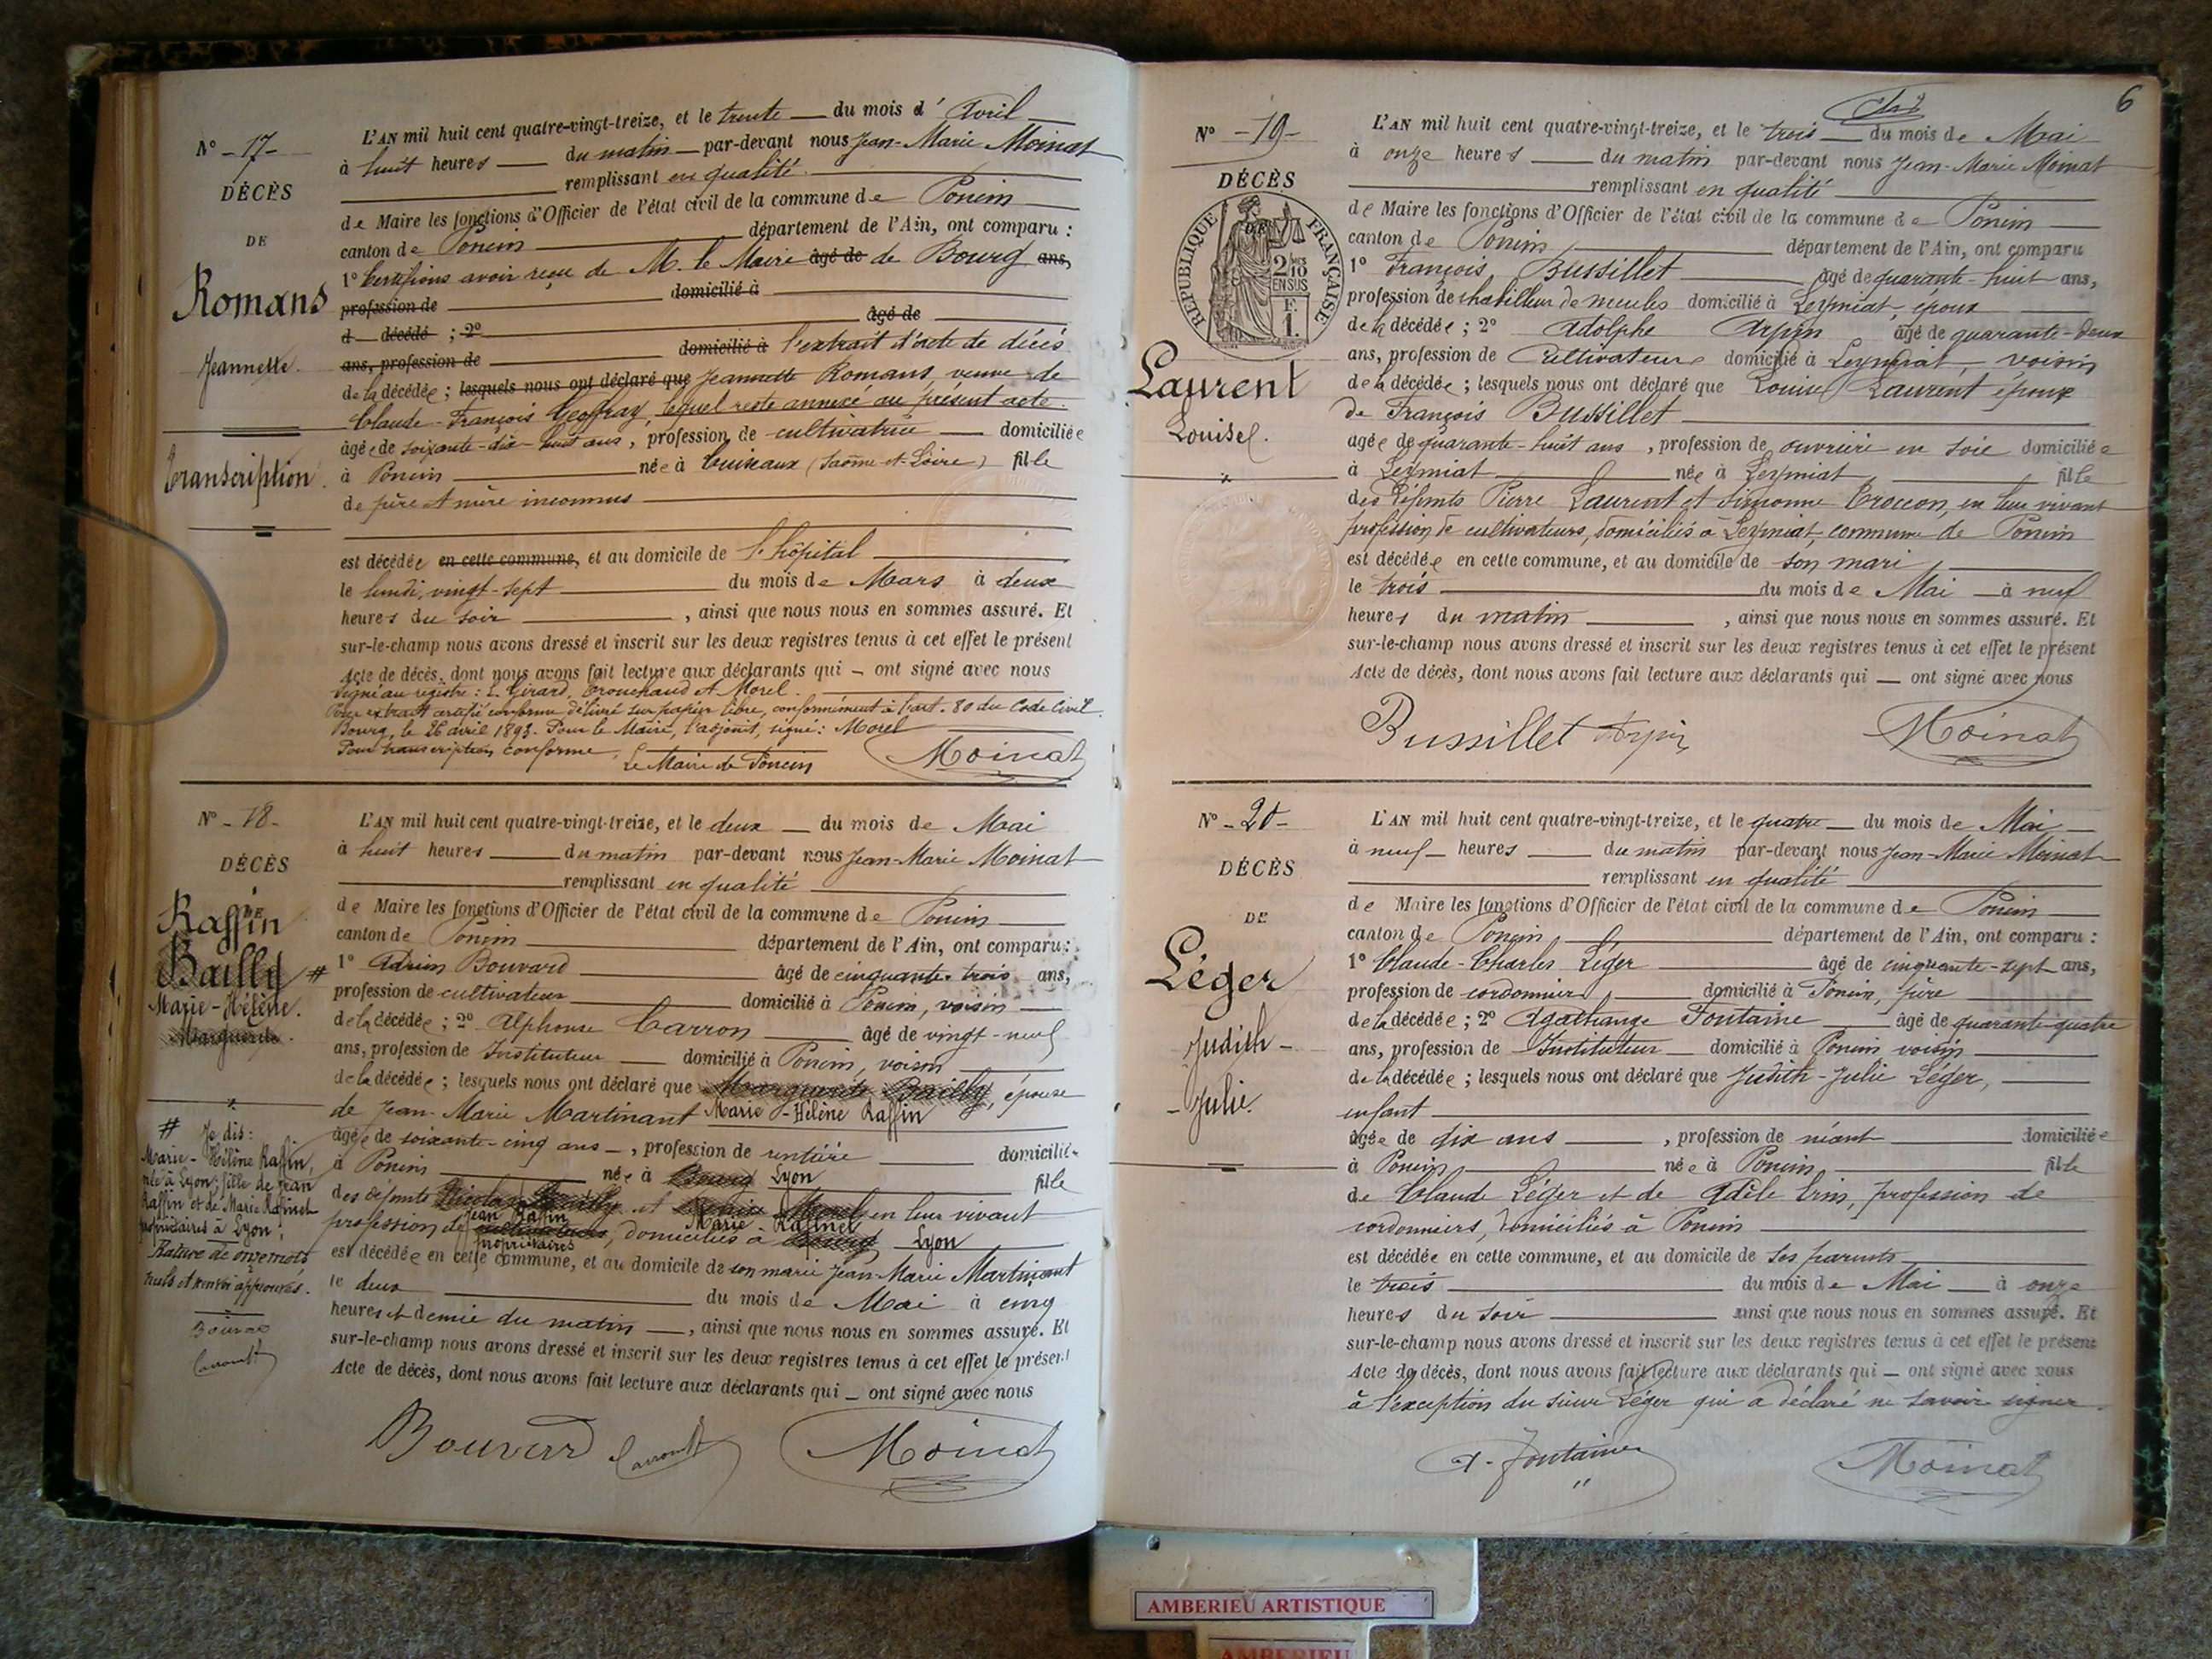 N° -17-
DÉCÈS
DE
Romans
Jeannette.
Transcription.
L'AN mil huit cent quatre-vingt-treize, et le trente — du mois d' Avril
à huit heures — du matin — par-devant nous Jean-Marie Moinat
remplissant en qualité
de Maire les fonctions d'Officier de l'état civil de la commune de Poncin
canton de Poncin département de l'Ain, ont comparu :
1° Certifions avoir reçu de M. le Maire âgé de de Bourg ans,
profession de domicilié à
d décédé ; 2° âgé de
ans, profession de domicilié à l'extrait d'acte de décès
de la décédée ; lesquels nous ont déclaré que Jeannette Romans, veuve de
Claude-François Geoffray, lequel reste annexé au présent acte.
âgée de soixante-dix-huit ans, profession de cultivatrice — domiciliée
à Poncin née à Cuiseaux (Saône-et-Loire) fille
de père et mère inconnus
est décédée en cette commune, et au domicile de l'hôpital
le lundi, vingt-sept du mois de Mars à deux
heures du soir , ainsi que nous nous en sommes assuré. Et
sur-le-champ nous avons dressé et inscrit sur les deux registres tenus à cet effet le présent
Acte de décès, dont nous avons fait lecture aux déclarants qui — ont signé avec nous
Signé au registre : L. Girard, Trouchaud et Morel.
Pour extrait certifié conforme délivré sur papier libre, conformément à l'art. 80 du Code Civil.
Bourg, le 26 avril 1893. Pour le Maire, l'adjoint, signé : Morel
Pour transcription conforme,
Le Maire de Poncin
Moinat
N° -18-
DÉCÈS
DE
Raffin
Bailly #
Marie-Hélène.
Marguerite.
# Je dis :
Marie-Hélène Raffin,
née à Lyon, fille de Jean
Raffin et de Marie Rafinel
propriétaires à Lyon,
Rature de onze mots
nuls et renvoi approuvés.
L'AN mil huit cent quatre-vingt-treize, et le deux — du mois de Mai
à huit heures — du matin par-devant nous Jean-Marie Moinat
remplissant en qualité
de Maire les fonctions d'Officier de l'état civil de la commune de Poncin
canton de Poncin département de l'Ain, ont comparu :
1° Adrien Bouvard âgé de cinquante-trois ans,
profession de cultivateur domicilié à Poncin, voisin
de la décédée ; 2° Alphonse Carron âgé de vingt-neuf
ans, profession de Instituteur — domicilié à Poncin, voisin
de la décédée ; lesquels nous ont déclaré que Marguerite Bailly, épouse
de Jean-Marie Martinant Marie-Hélène Raffin
âgée de soixante-cinq ans —, profession de rentière domiciliée
à Poncin née à Bourg Lyon fille
des défunts Nicolas Bailly et en leur vivant
Jean Raffin Marie-Rafinel
profession de cultivateurs, domiciliés à Bourg Lyon
propriétaires
est décédée en cette commune, et au domicile de son mari Jean-Marie Martinant
le deux du mois de Mai à cinq
heures et demie du matin —, ainsi que nous nous en sommes assuré. Et
sur-le-champ nous avons dressé et inscrit sur les deux registres tenus à cet effet le présent
Acte de décès, dont nous avons fait lecture aux déclarants qui — ont signé avec nous
Bouvard Carron Moinat
6
N° -19-
DÉCÈS
DE
RÉPUBLIQUE FRANÇAISE
2/10
EN SUS
F.
1.
Laurent
Louise.
L'AN mil huit cent quatre-vingt-treize, et le trois — du mois de Mai
à onze heures — du matin par-devant nous Jean-Marie Moinat
remplissant en qualité
de Maire les fonctions d'Officier de l'état civil de la commune de Poncin
canton de Poncin département de l'Ain, ont comparu
1° François Bussillet âgé de quarante-huit ans,
profession de rhabilleur de meules domicilié à Leymiat, époux
de la décédée ; 2° Adolphe Arpin âgé de quarante-deux
ans, profession de Cultivateur domicilié à Leymiat, voisin
de la décédée ; lesquels nous ont déclaré que Louise Laurent épouse
de François Bussillet
âgée de quarante-huit ans, profession de ouvrière en soie domiciliée
à Leymiat née à Leymiat fille
des défunts Pierre Laurent et Simonne Troccon, en leur vivant
profession de cultivateurs, domiciliés à Leymiat, commune de Poncin
est décédée en cette commune, et au domicile de son mari
le trois du mois de Mai — à neuf
heures du matin , ainsi que nous nous en sommes assuré. Et
sur-le-champ nous avons dressé et inscrit sur les deux registres tenus à cet effet le présent
Acte de décès, dont nous avons fait lecture aux déclarants qui — ont signé avec nous
Bussillet Arpin Moinat
N° -20-
DÉCÈS
DE
Léger
Judith-
-Julie.
L'AN mil huit cent quatre-vingt-treize, et le quatre — du mois de Mai
à neuf — heures — du matin par-devant nous Jean-Marie Moinat
remplissant en qualité
de Maire les fonctions d'Officier de l'état civil de la commune de Poncin
canton de Poncin département de l'Ain, ont comparu :
1° Claude-Charles Léger âgé de cinquante-sept ans,
profession de cordonnier domicilié à Poncin, père
de la décédée ; 2° Agathange Fontaine âgé de quarante-quatre
ans, profession de Instituteur domicilié à Poncin voisin
de la décédée ; lesquels nous ont déclaré que Judith-Julie Léger,
enfant
âgée de dix ans , profession de néant domiciliée
à Poncin née à Poncin fille
de Claude Léger et de Adèle Crin, profession de
cordonniers, domiciliés à Poncin
est décédée en cette commune, et au domicile de ses parents
le trois du mois de Mai — à onze
heures du soir ainsi que nous nous en sommes assuré. Et
sur-le-champ nous avons dressé et inscrit sur les deux registres tenus à cet effet le présent
Acte de décès, dont nous avons fait lecture aux déclarants qui — ont signé avec nous
à l'exception du sieur Léger qui a déclaré ne savoir signer.
A. Fontaine Moinat
AMBERIEU ARTISTIQUE
AMBERIEU